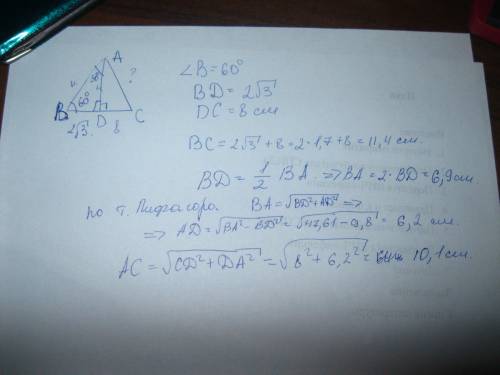 A
?
60°
B
D
C
2√3
8
∠B=60°
BD = 2√3
DC = 8 см
BC = 2√3 + 8 = 2·1,7 + 8 = 11,4 см.
BD = 1/2 BA ⇒ BA = 2·BD = 6,9 см.
по т. Пифагора. BA = √BD²+AD² ⇒
⇒ AD = √BA² - BD² = √47,61 - 9,8 = 6,2 см.
AC = √CD² + DA² = √8² + 6,2² = 10,1 см.